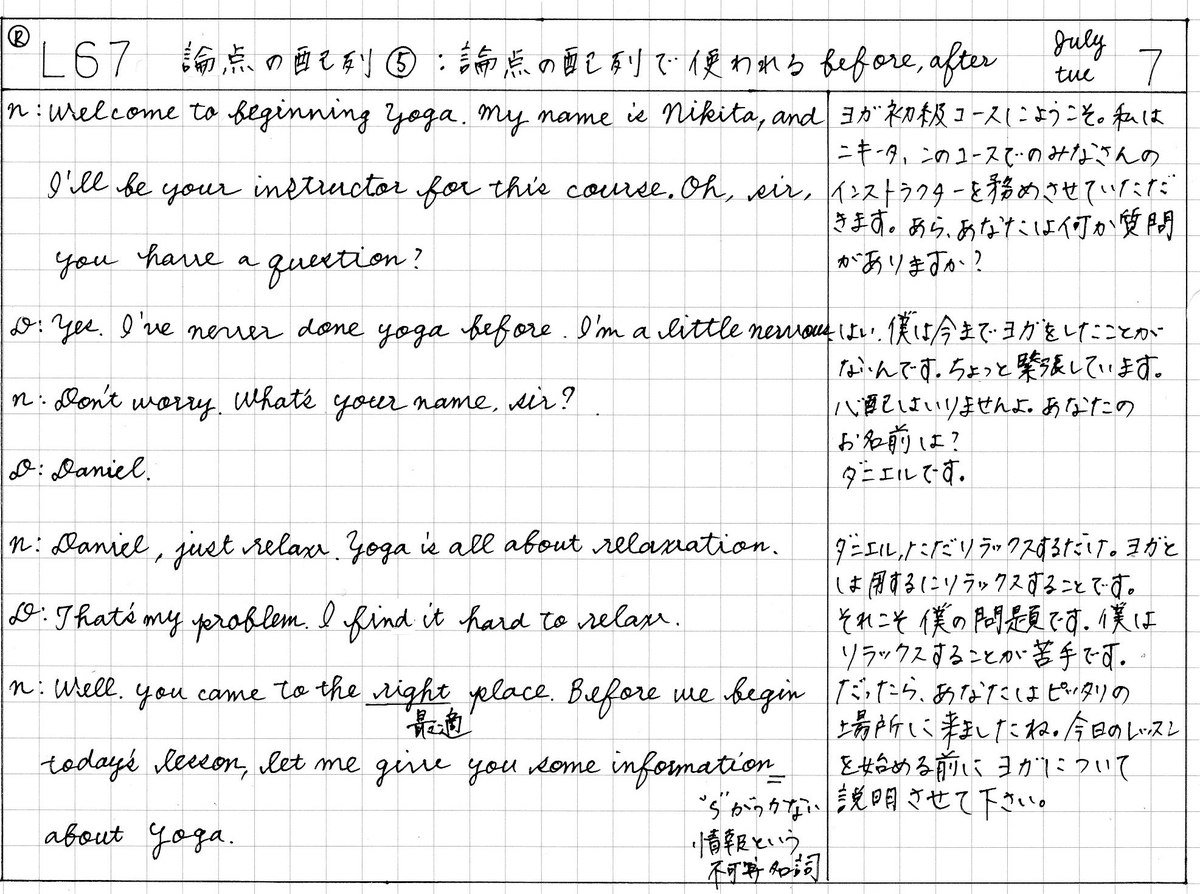 Ⓡ L67 論点の配列⑤:論点の配列で使われるbefore, after July tue 7
n: Welcome to beginning Yoga. My name is Nikita, and
I'll be your instructor for this course. Oh, sir,
you have a question?
D: Yes. I've never done yoga before. I'm a little nervous.
n: Don't worry. What's your name, sir?
D: Daniel.
n: Daniel, just relax. Yoga is all about relaxation.
D: That's my problem. I find it hard to relax.
n: Well. you came to the right place. Before we begin
最適
today's lesson, let me give you some information
"s"がつかない
情報という
不可算名詞
about Yoga.
ヨガ初級コースにようこそ。私は
ニキータ、このコースでのみなさんの
インストラクターを務めさせていただ
きます。あら、あなたは何か質問
がありますか?
はい、僕は今までヨガをしたことが
ないんです。ちょっと緊張しています。
心配はいりませんよ。あなたの
お名前は?
ダニエルです。
ダニエル,ただリラックスするだけ。ヨガと
は用するにリラックスすることです。
それこそ僕の問題です。僕は
リラックスすることが苦手です。
だったら、あなたはピッタリの
場所に来ましたね。今日のレッスン
を始める前にヨガについて
説明させて下さい。